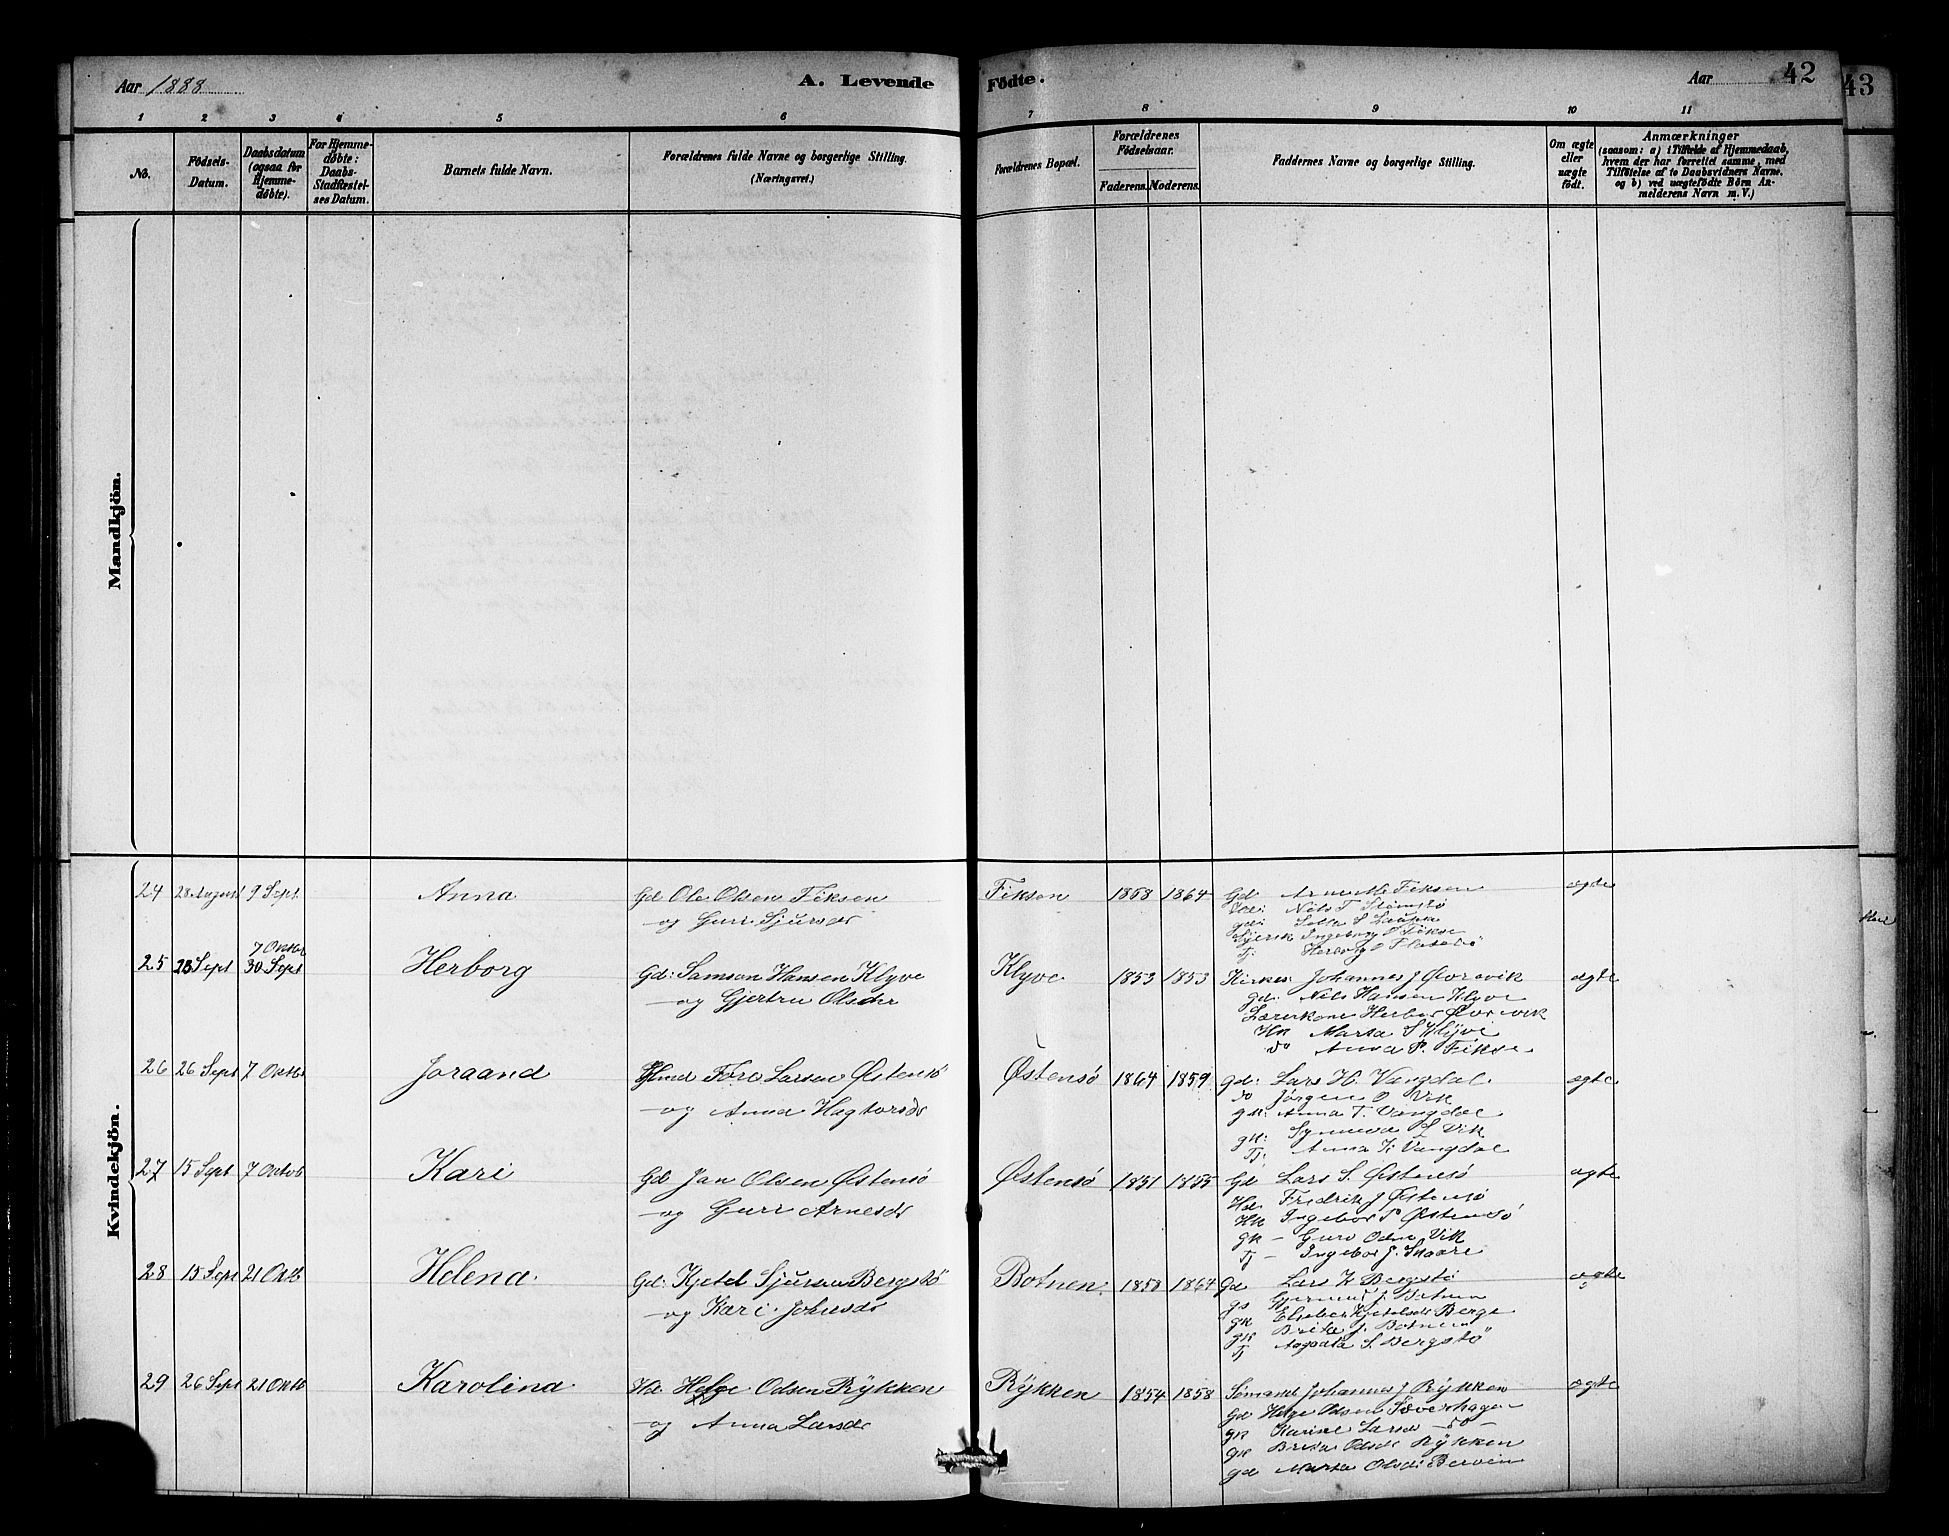 Aar 1888
A. Levende
Födte.
Aar
42
43
1 2 3 4 5 6 7 8 9 10 11
No.
Födsels-
Datum.
Daabsdatum
(ogsaa for
Hjemme-
døbte).
For Hjemme-
døbte:
Daabs-
Stadfæstel-
ses Datum.
Barnets fulde Navn.
Forældrenes fulde Navne og borgerlige Stilling.
(Næringsvei.)
Forældrenes Bopæl.
Forældrenes
Födselsaar.
Faderens. Moderens.
Faddernes Navne og borgerlige Stilling.
Om ægte
eller
uægte
födt.
Anmærkninger
(saasom: a) i Tilfælde af Hjemmedaab,
hvem der har forrettet samme, med
Tilföielse af to Daabsvidners Navne,
og b) ved uægtefödte Börn An-
melderens Navn m. V.)
Mandkjön.
Kvindekjön.
24 28 August 9 Sept Anna Gd Ole Olsen Fiksen
og Guri Sjursdr
Fikson 1858 1864 Gd Arne Fiksen
Nils T Stømstø
gd:
Ingeborg O Fikse
Tj: Herborg O
ægte
25 23 Sept 7 Oktbr
30 Sept Herborg Gd: Samson Hansen Klyve
og Gjertru Olsdtr
Klyve 1853 1853 Kirkes: Johannes J Øvrevik
gd: Nils Hansen Klyve
Lærerkone Herbor Øvrevik
Hk Marta S Klyve
do Anna P. Fikse
ægte
26 26 Sept 7 Oktbr Joraand Tore Larsen Østensø
og Anna Hagtorsdr
Østensø 1864 1859 gd: Lars H. Vangdal
do Jørgen O Vik
gk: Anna T. Vangdal
gk: Synneva L Vik
Tj: Anna K Vangdal
ægte
27 15 Sept 7 Oktob Kari Gd Jan Olsen Østensø
og Guri Arnesdr
Østensø 1851 1855 Gd Lars S. Østensø
Hd Fredrik J Østensø
Hk Ingebor P Østensø
gk - Guro Odsn Vik
Tj - Ingebor J. Skaare
ægte
28 15 Sept 21 Oktb Helena. Gd: Kjetel Sjursen Bergstø
og Kari Johnsdr
Botnen. 1858 1864 Gd Lars K Bergstø
gs J. Botnen
gk Elseber Kjetelsdr Berge
gk Brita J. Botnen
Tj Aagaata S. Bergstø
ægte
29 26 Sept 21 Oktb Karolina Hd. Helge Odsen Rykken
og Anna Larsdr
Rykken 1854 1858 Sømand Johannes J Rykken
Gd Helge Odsen Sæverhagen
gk Karine Larsdr - do -
gk Brita Odsdr Rykken
gd Marta Olsdr Berven
ægte